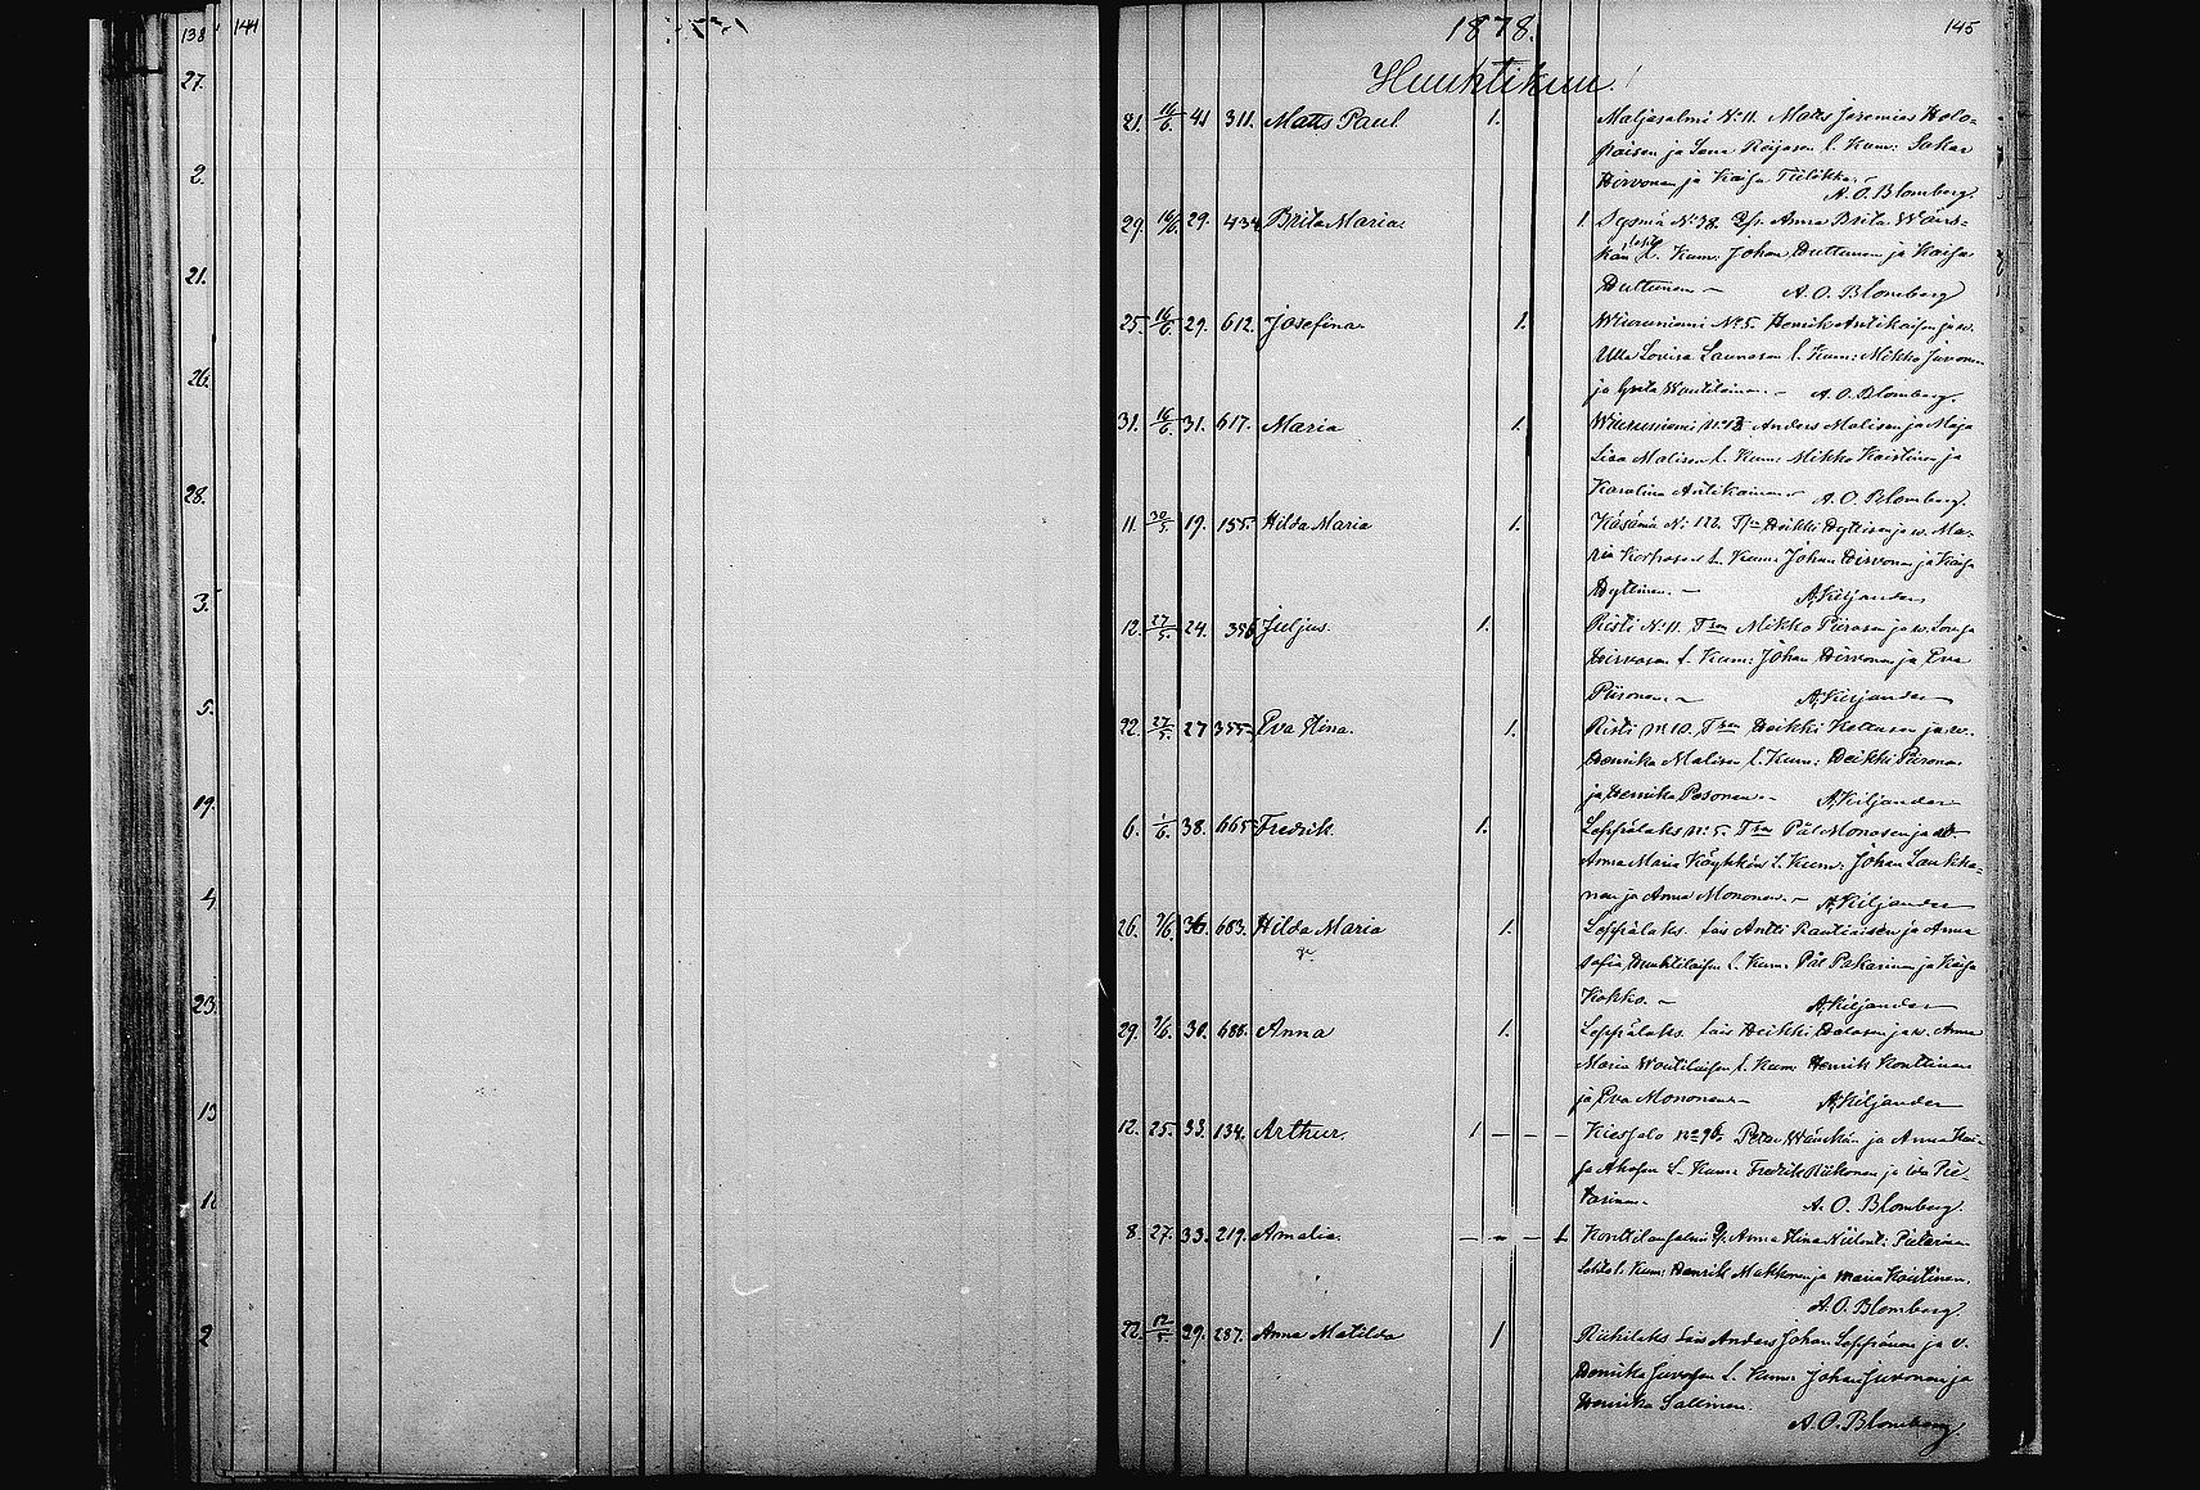 138 144
27.
2.
21.
26.
28.
3.
5.
19.
4.
23.
13
2
1878. 145
Huuhtikuu.
21. 16/6. 41 311. Matts Paul. 1. Maljasalmi N:o 11. Matts Jeremias Holo-
paisen ja Lena Reijosen l. Kum: Sakar
Hirvonen ja Kaisa Tiilikka.
A. O. Blomberg.
29. 16/6. 29. 434 Brita Maria. 1. Sysmä N:o 38. Anna Brita Wäns-
kän l. Kum: Johan Huttunen ja Kaisa
Huttunen – A. O. Blomberg
25. 16/6. 29. 612. Josefina. 1. Wiuruniemi No 5. Henrik Antikaisen ja w.
Ulla Lovisa Launosen l. Kum: Mikko Juvonen
ja Greta Woutilainen. – A. O. Blomberg.
31. 16/6. 31. 617. Maria 1. Wiuruniemi Anders Malisen ja Maja
Lisa Malisen l. Kum: Mikko Koistinen ja
Karolina Antikainen – A. O. Blomberg.
11. 30/5. 19. 155. Hilda Maria 1. Käsämä N:o 122. Heikki Hyttisen ja w. Ma-
ria Korhosen l. Kum: Johan Hirvonen ja Kaisa
Hyttinen. – A. Kiljander
12. 27/5. 24. 356 Juljus. 1. Risti N:o 11. Mikko Piirosen ja w. Lovisa
Hirvosen l. Kum: Johan Hirvonen ja Eva
Piironen. – A. Kiljander
22. 27/5. 27 355. Eva Stina. 1. Risti N:o 10. Heikki Kettusen ja w.
Henrika Malisen l. Kum: Heikki Piironen
ja Henrika Pesonen. – A. Kiljander
6. 1/6. 38. 665 Fredrik. 1. Leppälaks N:o 5. Pål Monosen ja w.
Anna Maria Köykkän l. Kum: Johan Laukka-
nen ja Anna Mononen. – A. Kiljander
26. 9/6. 36. 683. Hilda Maria 1. Leppälaks. Lais Antti Rautiaisen ja Anna
Sofia Huuhtilaisen l. Kum: Pål Pakarinen ja Kaisa
Kokko. – A. Kiljander
29. 9/6. 30. 688. Anna 1. Leppälaks. Lais Heikki Halosen ja w. Anna
Maria Woutilaisen l. Kum: Henrik Konttinen
ja Eva Mononen. – A. Kiljander
12. 25. 33. 134. Arthur. 1 – – – Kiessalo No 96 Petter Wänskän ja Anna Kai-
sa Ahosen l. Kum: Fredrik Riikonen ja Ida Pie-
tarinen. A. O. Blomberg.
8. 27. 33. 219. Amalia. – – – 1 Konttilansalmi Anna Stina Niilont: Pietarinen
l. Kum: Henrik Makkonen ja Maria Koistinen.
A. O. Blomberg.
22. 12/5. 29. 287. Anna Matilda 1 Riihilaks Lais Anders Johan Leppänen ja v.
Henrika Juvosen l. Kum: Johan Juvonen ja
Henrika Sallinen.
A. O. Blomberg.